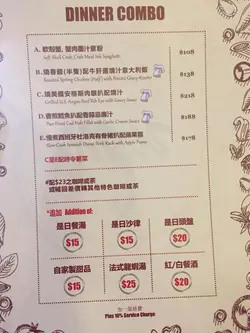 DINNER COMBO
A. 軟殼蟹, 蟹肉墨汁意粉 $108
Soft Shell Crab, Crab Meat Ink Spaghetti
B. 燒春雞(半隻)配牛肝菌燒汁意大利飯 $138
Roasted Spring Chicken (Half) with Porcini Gravy Risotto
C. 燒美國安格斯肉眼扒配燒汁 $218
Grilled U.S. Angus Beef Rib Eye with Gravy Sauce
D. 香煎鱈魚扒配香蒜忌廉汁 $188
Pan-Fried Cod Fish Fillet with Garlic Cream Sauce
E. 慢煮西班牙杜洛克有骨豬扒配蘋果蓉 $178
Slow-Cook Spanish Duroc Pork Rack with Apple Puree
C至E配時令薯菜
#配$23之咖啡或茶
或補回差價轉其他特色咖啡或茶
*追加 Addition of:
是日餐湯 是日沙律 是日頭盤
$15 $15 $20
自家製甜品 法式龍蝦湯 紅/白餐酒
$15 $25 $20
加一服務費
Plus 10% Service Charge